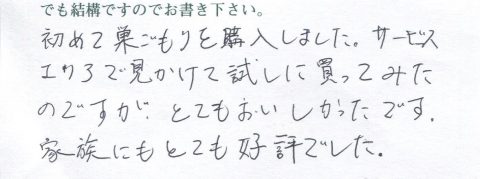 でも結構ですのでお書き下さい。
初めて巣ごもりを購入しました。サービス
エリアで見かけて試しに買ってみた
のですが、とてもおいしかったです。
家族にもとても好評でした。